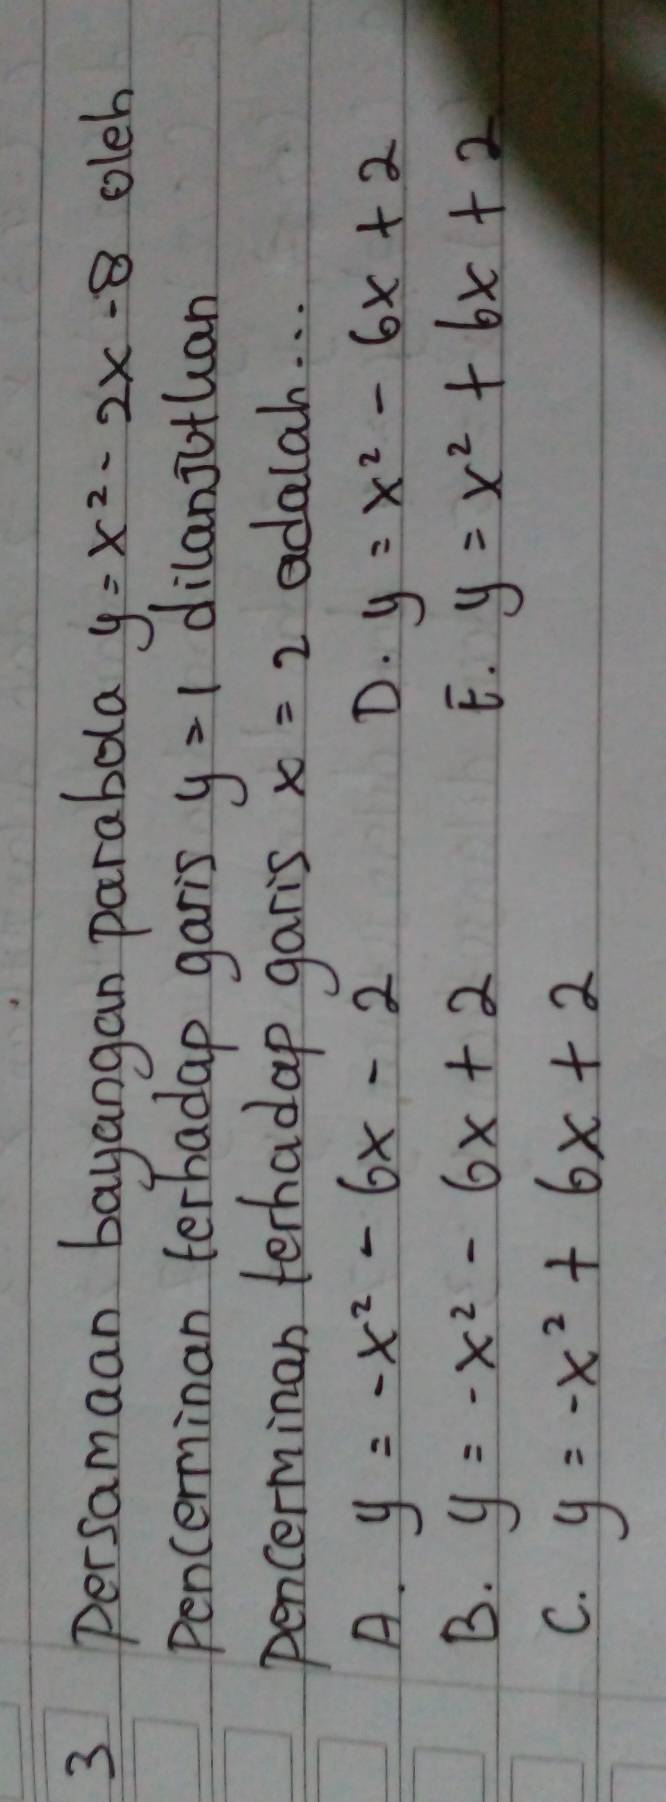 3 Persamaan bayangan parabola y = x² - 2x - 8 oleh
Pencerminan terhadap garis y = 1 dilanjutkan
pencerminan terhadap garis x = 2 adalah...
A. y = -x² - 6x - 2 D. y = x² - 6x + 2
B. y = -x² - 6x + 2 E. y = x² + 6x + 2
C. y = -x² + 6x + 2